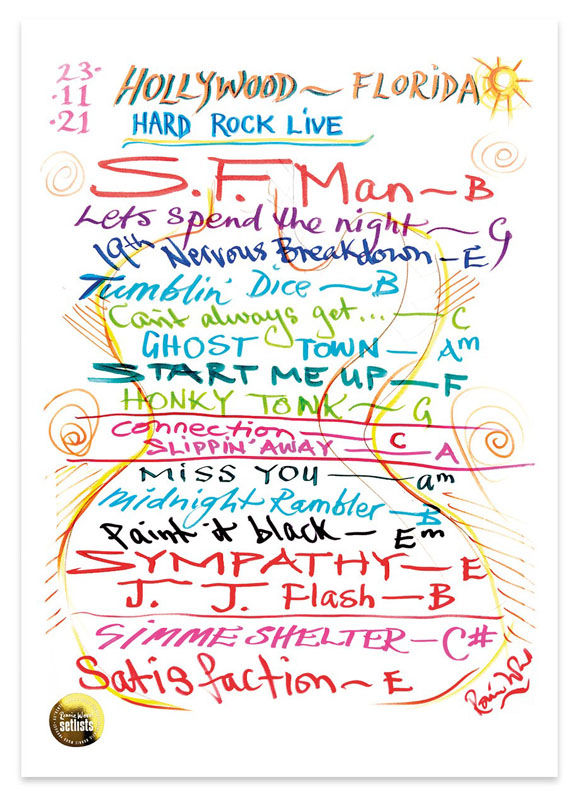 23·
·11
·21
HOLLYWOOD ~ FLORiDA
HARD ROCK LiVE
S.F. Man ~ B
Lets spend the night ~ G
19th Nervous Breakdown - E
Tumblin' Dice ~ B
Can't always get... — C
GHOST TOWN — Am
START ME UP — F
HONKY TONK — G
Connection — C
SLIPPIN' AWAY — A
MISS YOU — am
Midnight Rambler — B
Paint it black — Em
SYMPATHY — E
J. J. Flash — B
GIMME SHELTER — C#
Satisfaction ~ E
Ronnie Wood
Ronnie Wood
setlists